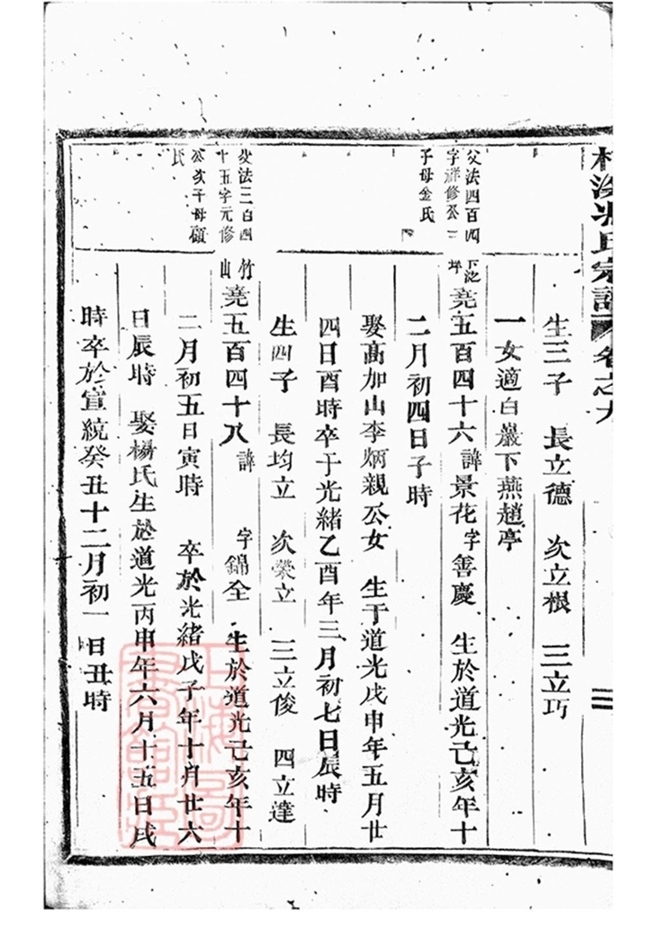 氏宗譜 卷之九
三
生三子 長立德 次立根 三立巧
一女適白巖下燕趙亭
父法四百四
字祥修公三
子母金氏
下沱
堯五百四十六 諱景花 字善慶 生於道光己亥年十
二月初四日子時
娶高加山李炳親公女 生于道光戊申年五月廿
四日酉時卒于光緒乙酉年三月初七日辰時
生四子 長均立 次榮立 三立俊 四立達
父法三百四
十五字元修
公次子母顧
氏
竹山
堯五百四十八 諱 字錦全 生於道光己亥年十
二月初五日寅時 卒於光緒戊子年十月廿六
日辰時 娶楊氏生於道光丙申年六月十五日戌
時卒於宣統癸丑十二月初一日丑時